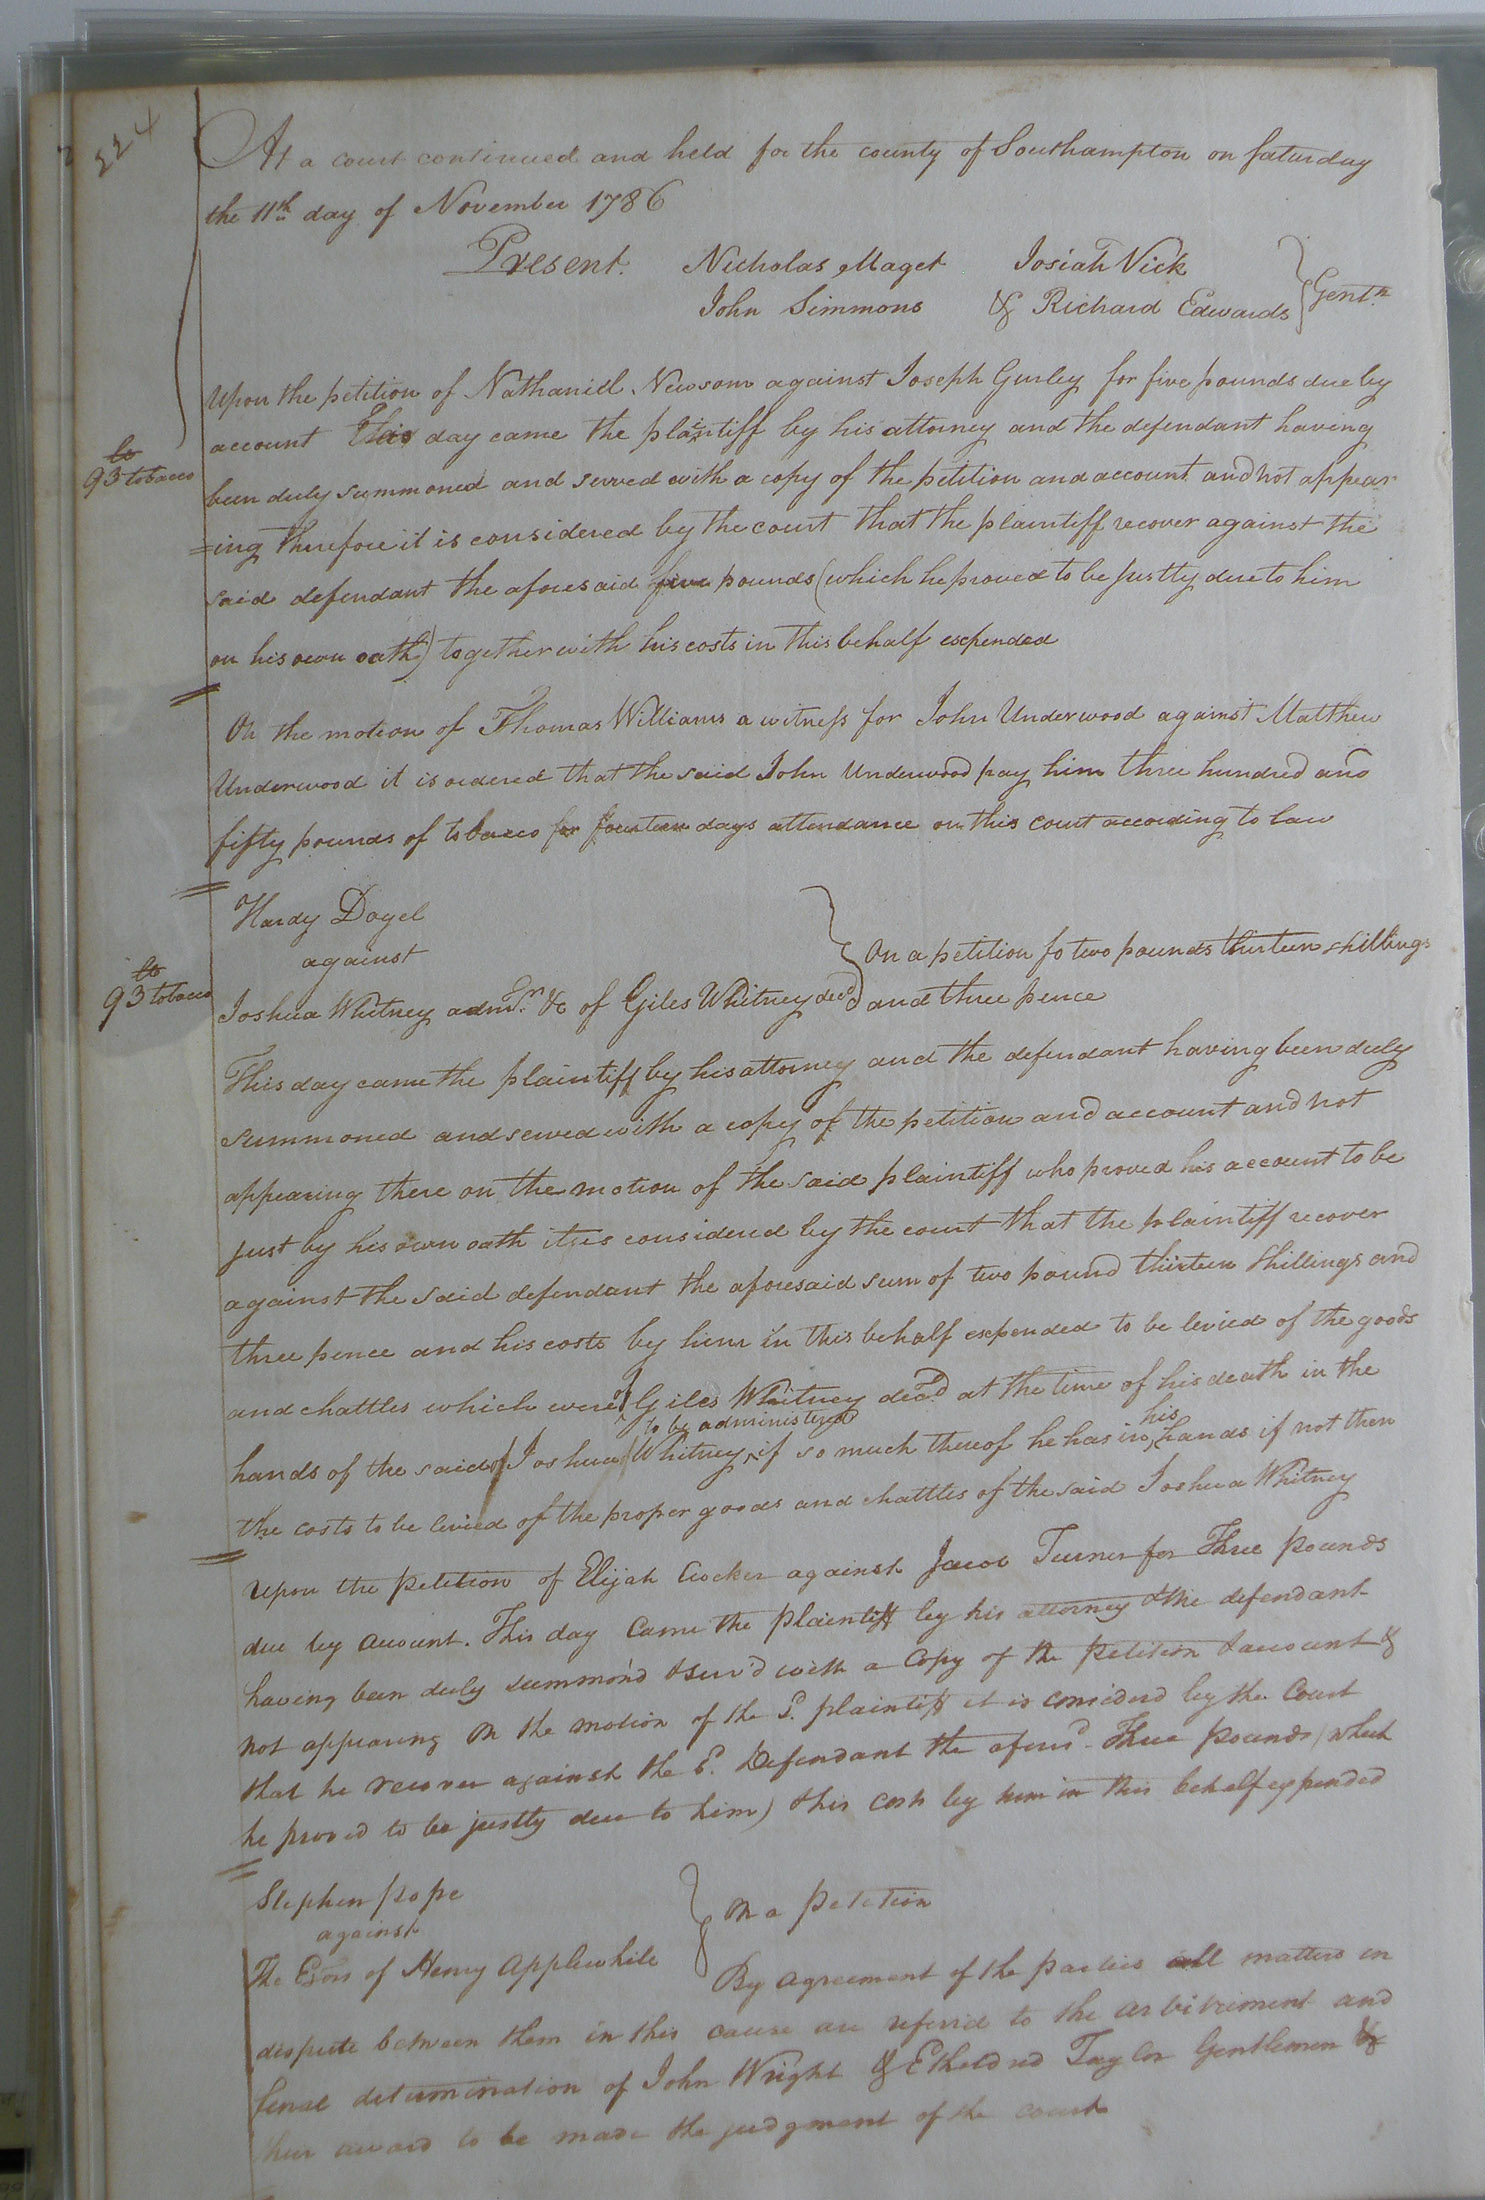 224
At a court continued and held for the county of Southampton on Saturday
the 11th day of November 1786
Present. Nicholas Maget Josiah Vick
John Simmons & Richard Edwards } Gentn
Upon the petition of Nathaniel Newsom against Joseph Gurley for five pounds due by
account This day came the plaintiff by his attorney and the defendant having
93 tobacco
been duly summoned and served with a copy of the petition and account and not appear
=ing therefore it is considered by the court that the plaintiff recover against the
said defendant the aforesaid five pounds (which he proved to be justly due to him
on his own oath) together with his costs in this behalf expended
On the motion of Thomas Williams a witness for John Underwood against Matthew
Underwood it is ordered that the said John Underwood pay him three hundred and
fifty pounds of tobacco for fourteen days attendance on this court according to law
Hardy Doyel
against } On a petition fo two pounds thirteen shillings
93 tobacco
Joshua Whitney admr. &c of Giles Whitney decd } and three pence
This day came the plaintiff by his attorney and the defendant having been duly
summoned and served with a copy of the petition and account and not
appearing there on the motion of the said plaintiff who proved his account to be
just by his own oath it is considered by the court that the plaintiff recover
against the said defendant the aforesaid sum of two pound thirteen shillings and
three pence and his costs by him in this behalf expended to be levied of the goods
and chattles which were of Giles Whitney decd at the time of his death in the
hands of the said Joshua Whitney to be administered if so much thereof he has in his hands if not then
the costs to be levied of the proper goods and chattles of the said Joshua Whitney
Upon the petition of Elijah Crocker against Jacob Turner for Three pounds
due by account. This day Came the Plaintiff by his attorney & the defendant
having been duly summon'd & serv'd with a Copy of the petition & account &
not appearing On the motion of the Sd. plaintiff it is considerd by the Court
that he recover against the Sd. Defendant the aforesd. Three pounds (which
he proved to be justly due to him) & his costs by him in this behalf expended
Stephen pope
against } On a Petition
The Exors of Henry Applewhite
By agreement of the parties all matters in
dispute between them in this cause are referrd to the arbitriment and
final determination of John Wright & Etheldred Taylor Gentlemen &
their award to be made the judgment of the court